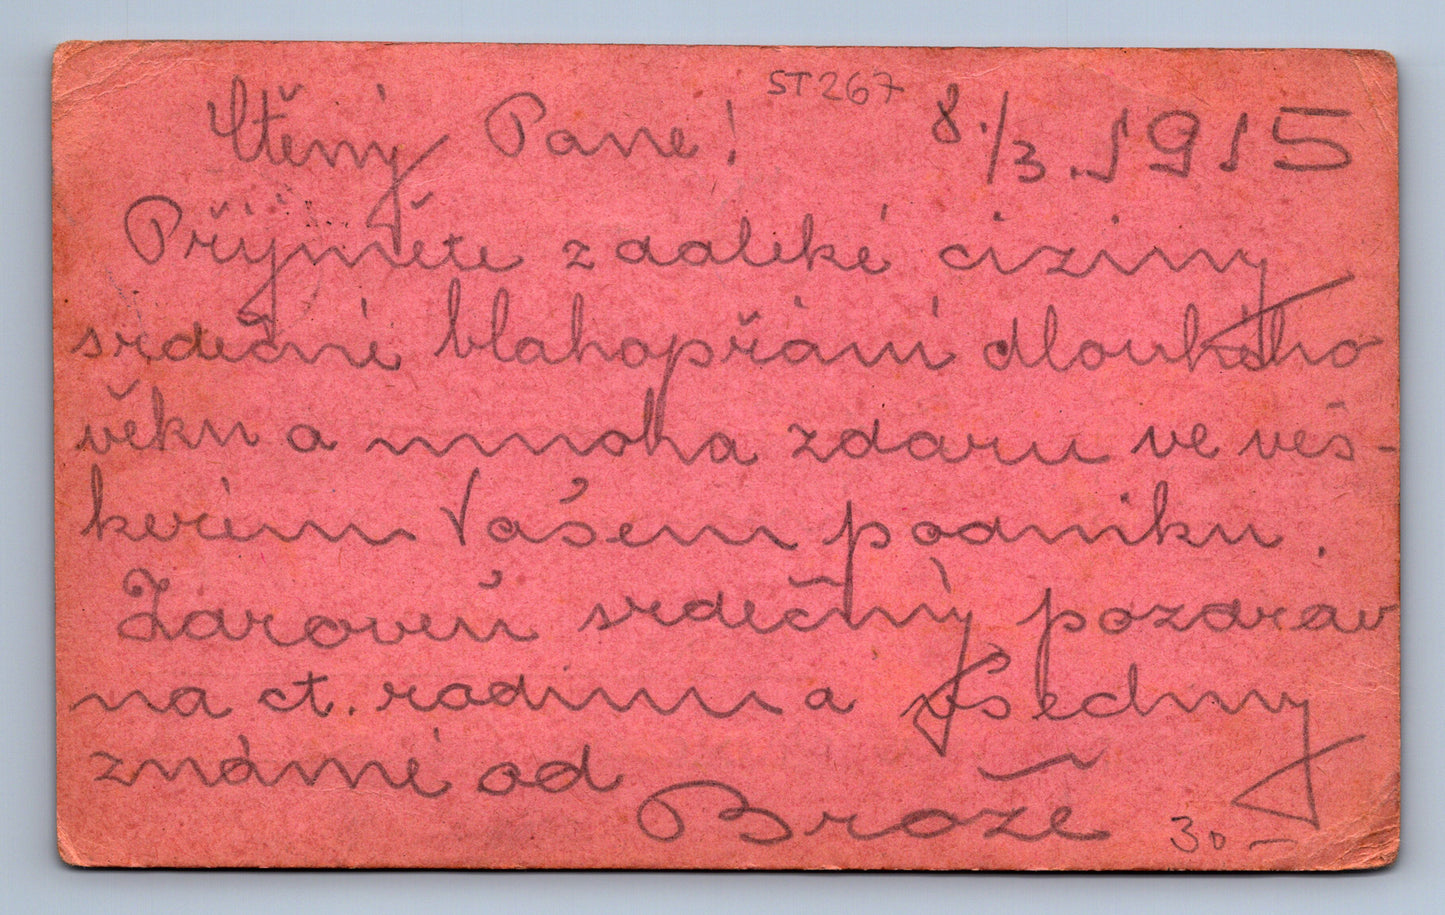 ST267
Ctěný Pane! 8./3.1915
Přijměte z daleké ciziny
srdečné blahopřání dlouhého
věku a mnoha zdaru ve veš-
kerém Vašem podniku.
Zároveň srdečný pozdrav
na ct. rodinu a všechny
známé od
Brože
30 –